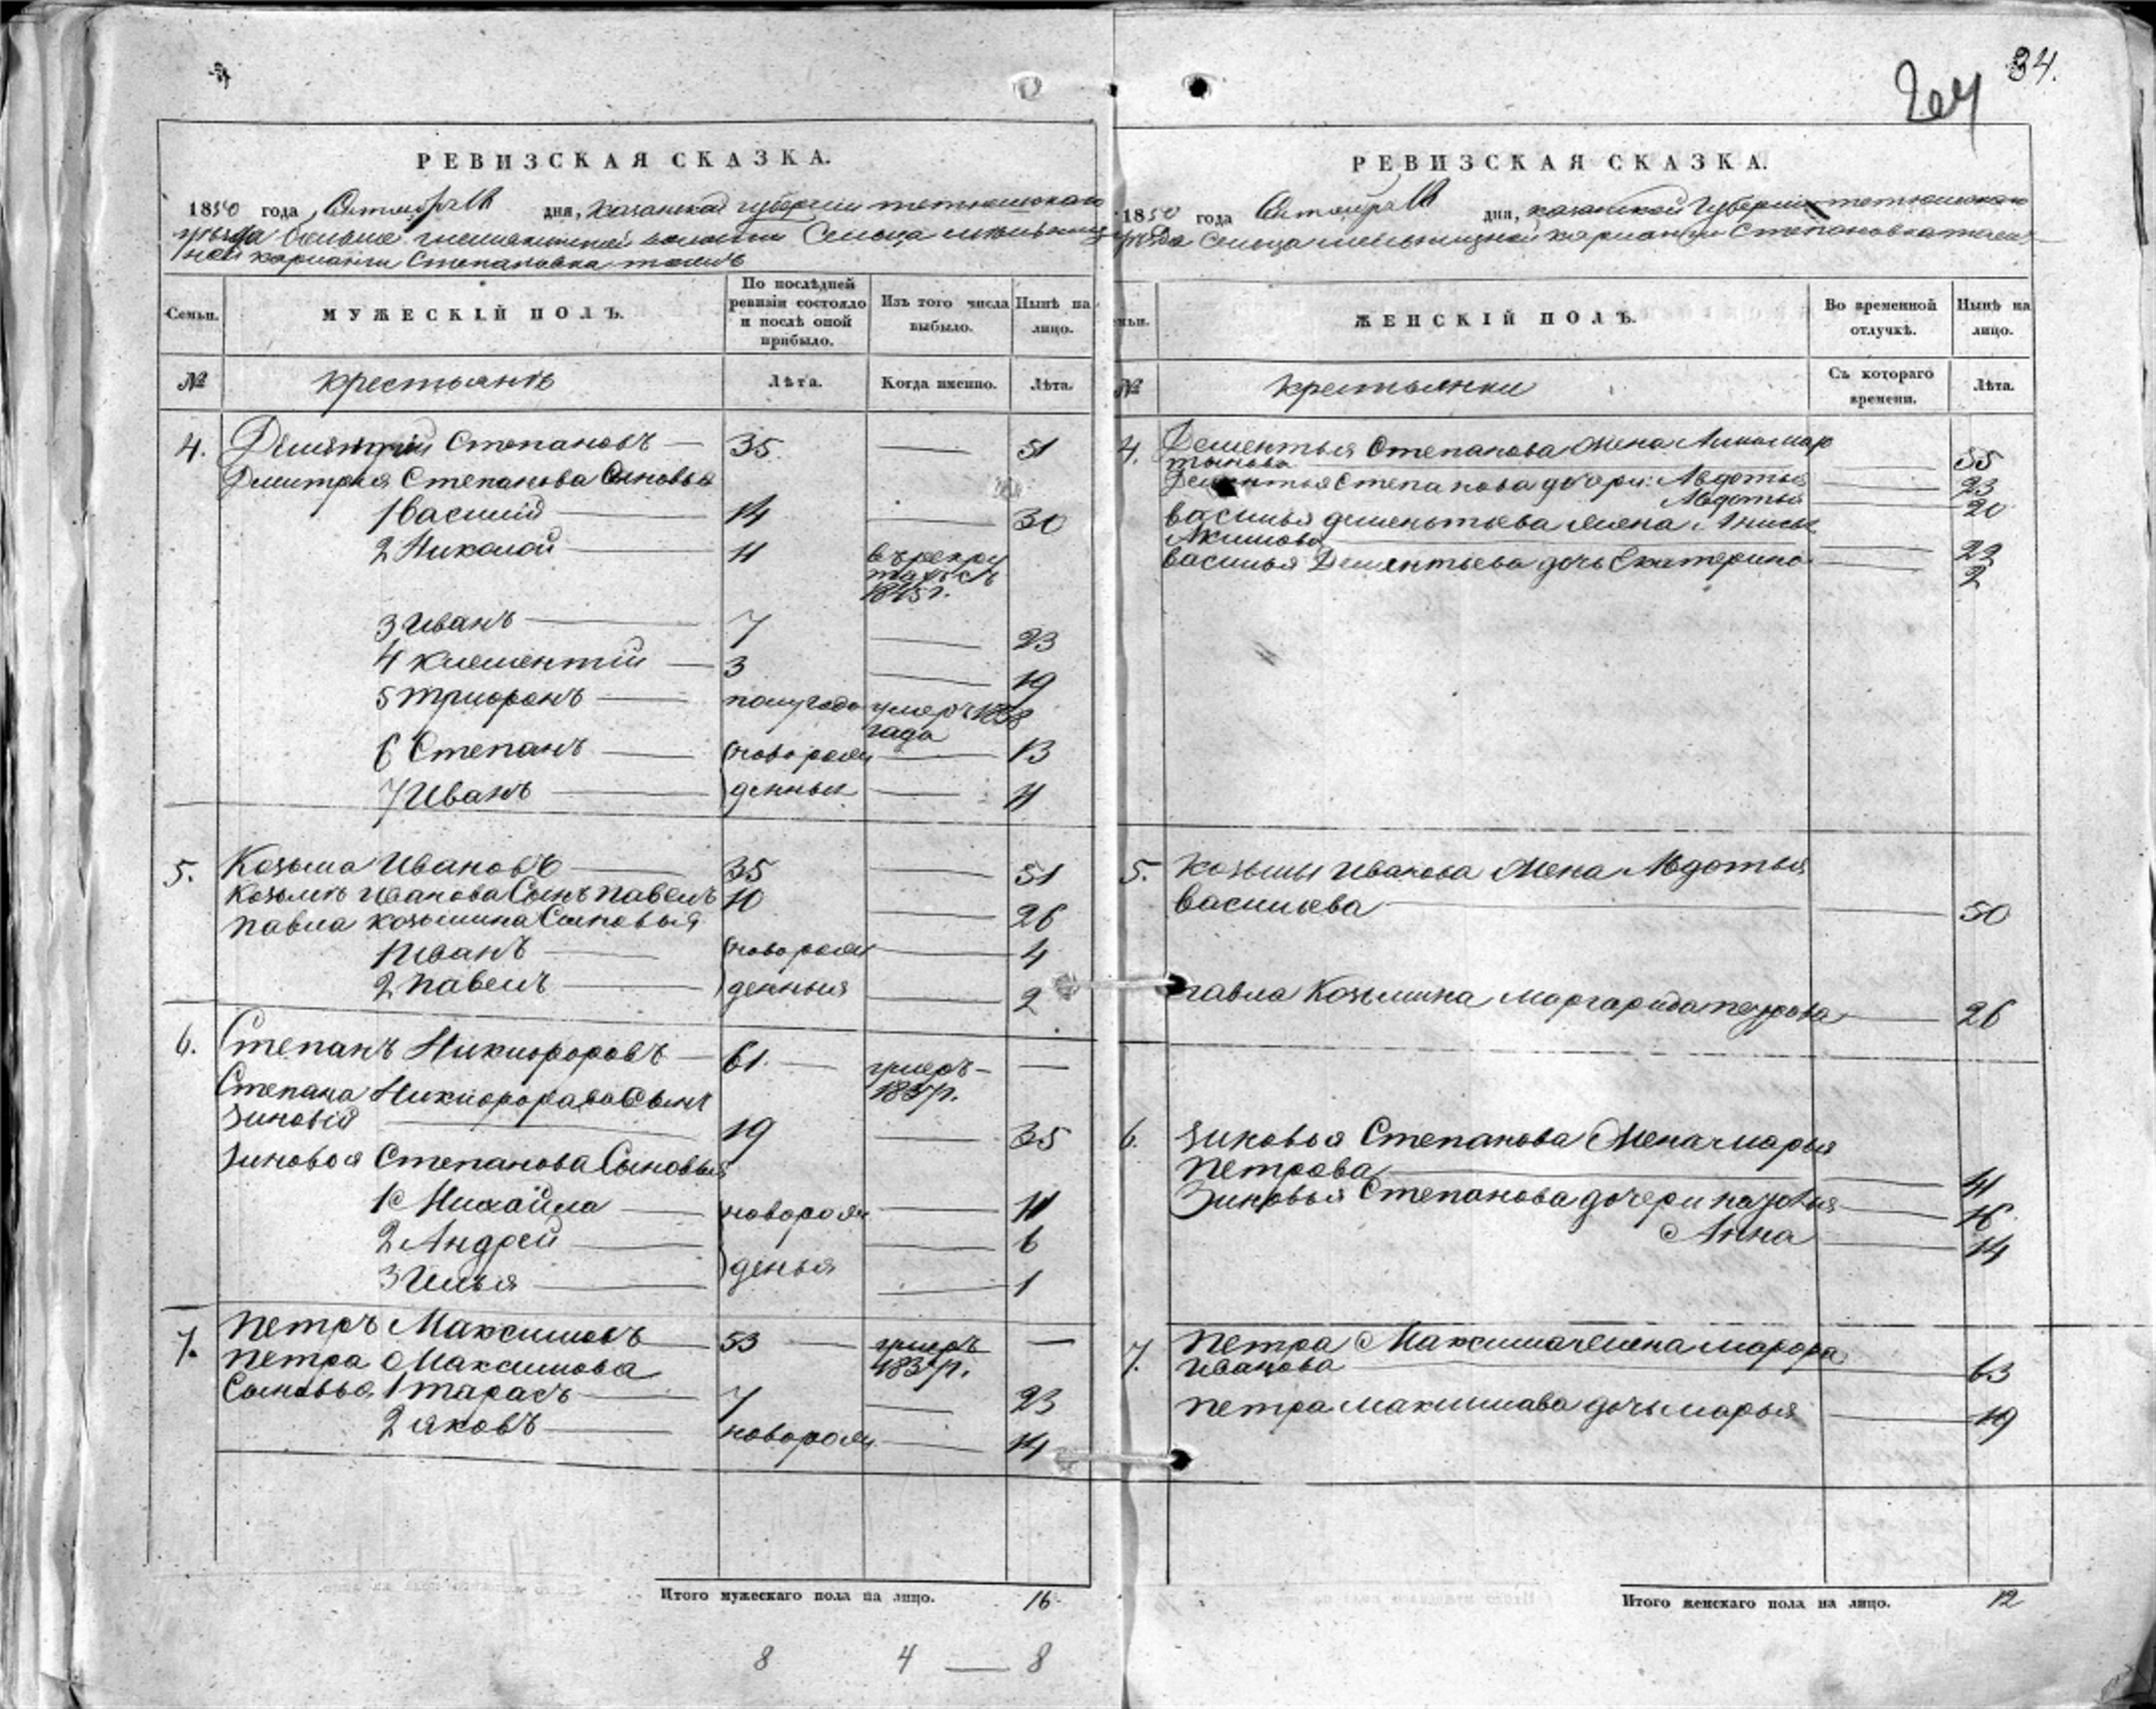 34.
РЕВИЗСКАЯ СКАЗКА.
1850 года Октября дня, Казанской губерніи тетюшскаго
уѣзда волости Сельца
ной Карланги Степановка тожъ
Семьи.
МУЖЕСКІЙ ПОЛЪ.
По послѣдней ревизіи состояло и послѣ оной прибыло.
Изъ того числа выбыло.
Нынѣ на лицо.
№
крестьянъ
Лѣта.
Когда именно.
Лѣта.
4. Степановъ — 35. — 51
Дмитрія Степанова Сыновья
1 Василій — 14 — 30
2 Николай — 11 въ рекру
тахъ съ
1845 г.
3 Иванъ — 7 — 23
4 Клементій — 3 — 19
5 Трифонъ — полугода умеръ 1838
года
6 Степанъ — новорож — 13
7 Иванъ — денныи — 11
5. Козьма Ивановъ — 35 — 51
Козьмы Иванова Сынъ Павелъ 10 — 26
Павла Козьмина Сыновья
1 Иванъ — новорож — 4
2 Павелъ — денныя — 2
6. Степанъ Никифоровъ — 61. — умеръ —
1837г.
Степана Никифорова Сынъ
Зиновій — 19 — 35
Зиновья Степанова Сыновья
1 Михайла — новорож — 11
2 Андрей — 6
3 Илья — денья — 1
7. Петръ Максимовъ — 53 — умеръ —
1837г.
Петра Максимова
Сыновья 1 Тарасъ — 7 — 23
2 Яковъ — новорож — 14
Итого мужескаго пола на лицо. 16
8 4 — 8
РЕВИЗСКАЯ СКАЗКА.
1850 года Октября дня, Казанской Губерніи тетюшскаго
уѣзда Сельца Карланги Степановка тожъ
Семьи.
ЖЕНСКІЙ ПОЛЪ.
Во временной отлучкѣ.
Нынѣ на лицо.
№
Крестьянки
Съ котораго времени.
Лѣта.
4. Дементья Степанова жена Мар
тынова — 55
Дементья Степанова дочери: Авдотья — 23
Авдотья — 20
Василья Дементьева жена
Акимова — 22
Василья Дементьева дочь Екатерина — 2
5. Козьмы Иванова жена Авдотья
Васильева — 50
Павла Козьмина Маргарида Петрова — 26
6. Зиновья Степанова жена марья
Петрова — 41
Зиновья Степанова дочери — 16
Анна — 14
7. Петра Максимача жена марфа
Иванова — 63
Петра Максимава дочь марья — 19
Итого женскаго пола на лицо. 12